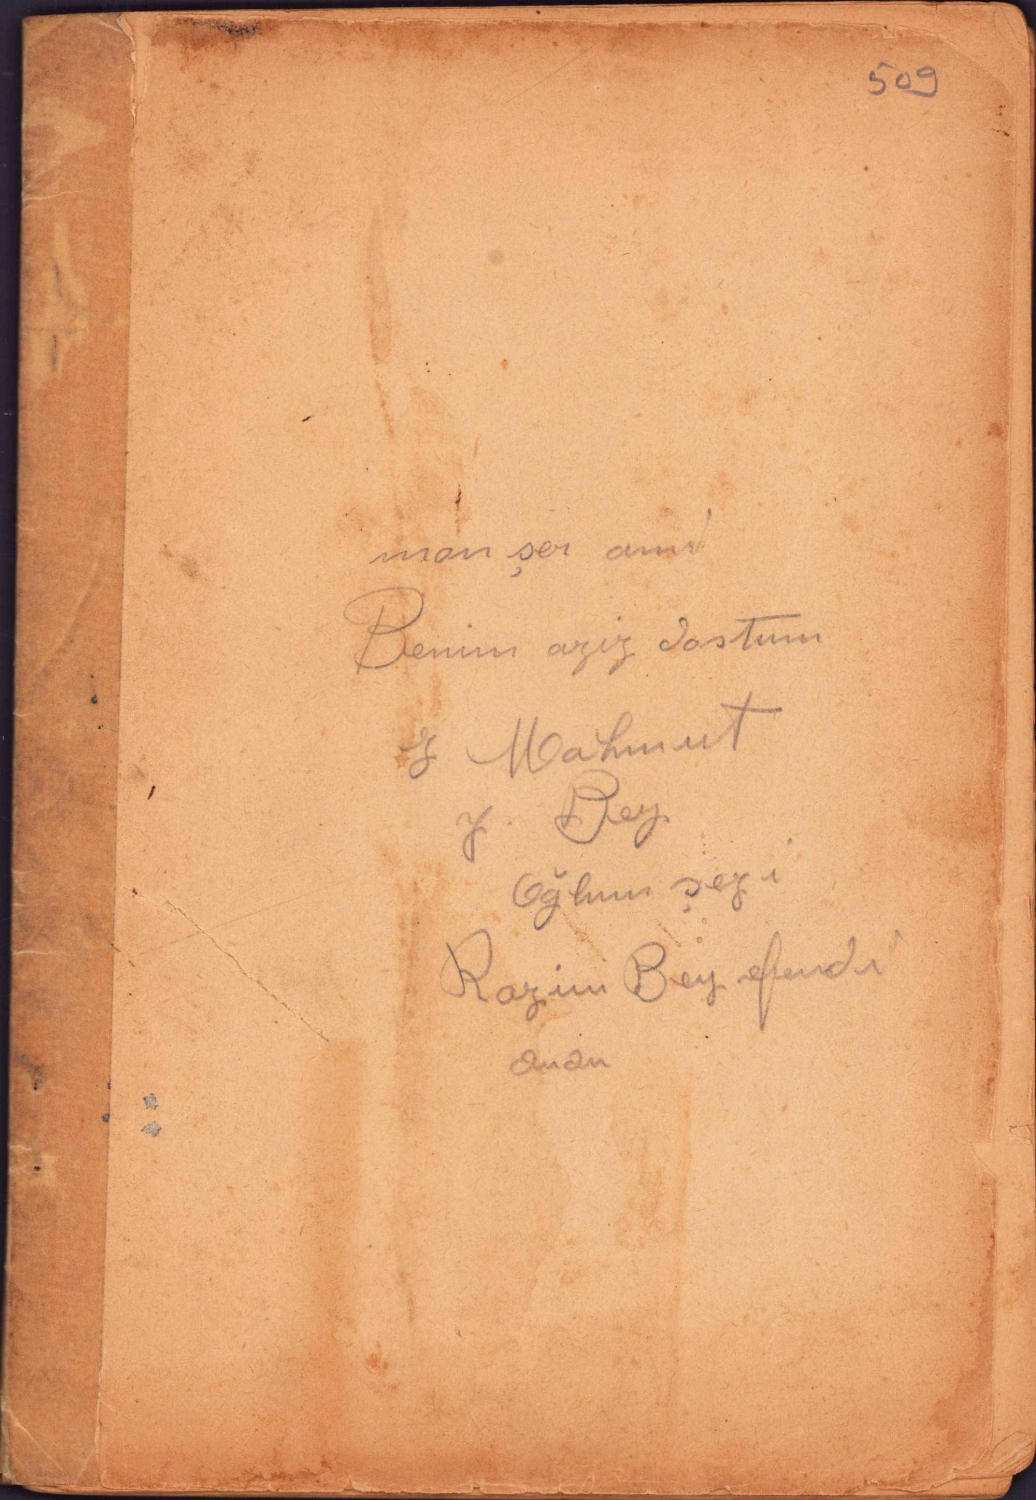 509
mon şer ami
Benim aziz dostum
Mahmut
Bey
Oğlum
Razim Bey efendi